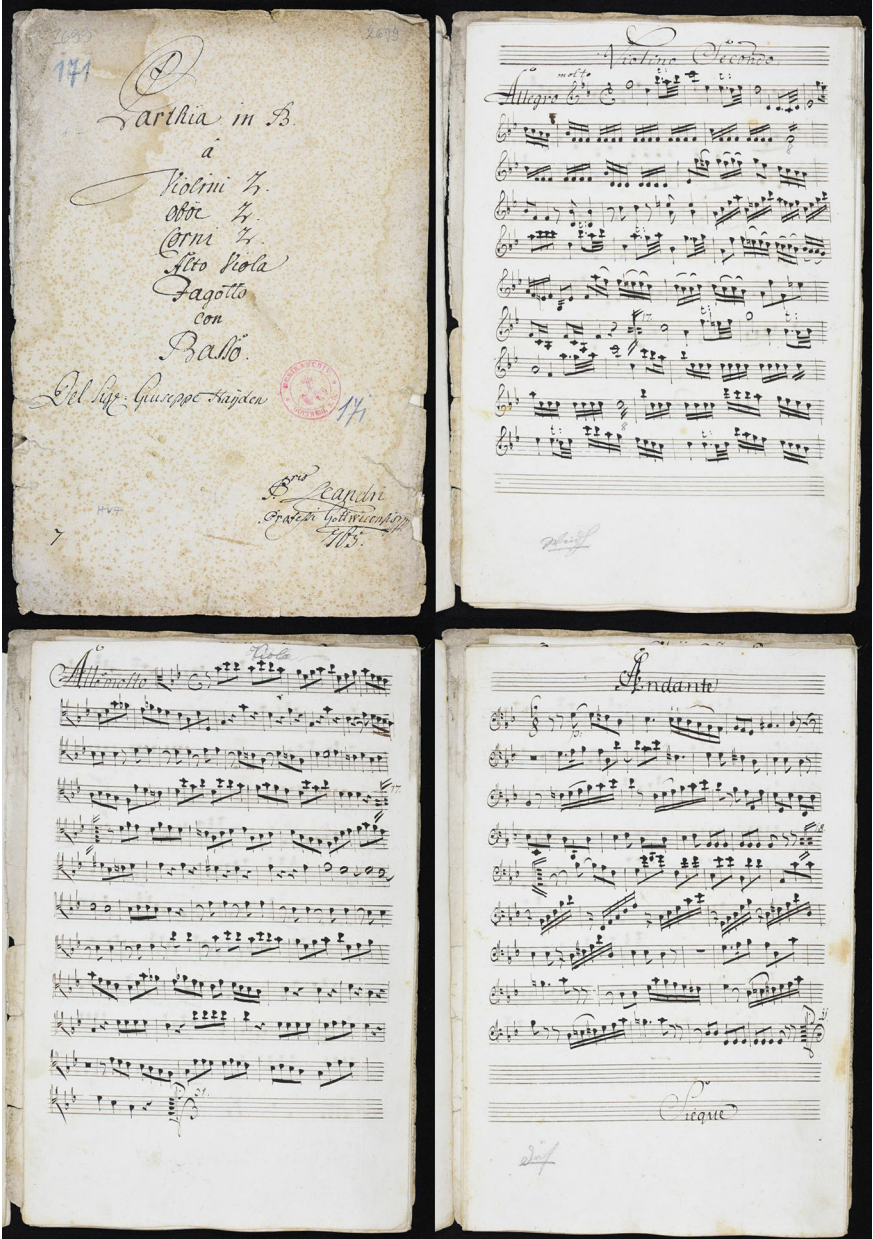 2699
2699
171
Parthia in B.
à
Violini 2.
Oboe 2.
Corni 2.
Alto Viola
Fagotto
con
Basso.
Del Sigre: Giuseppe Hayden
171
P. Leandri
Professi Gottwicensis
765.
7
Violino Secondo
Allegro molto
t:
t:
17.
t:
t:
8
t:
Viola
Allo molto
17.
31.
Andante
p:
18
31
Sieque